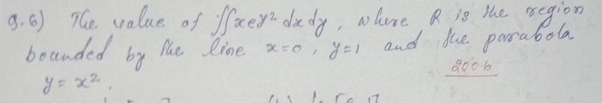 9.6) The value of ∬xey² dxdy, where R is the region
bounded by the line x=0, y=1 and the parabola
y = x².
2006